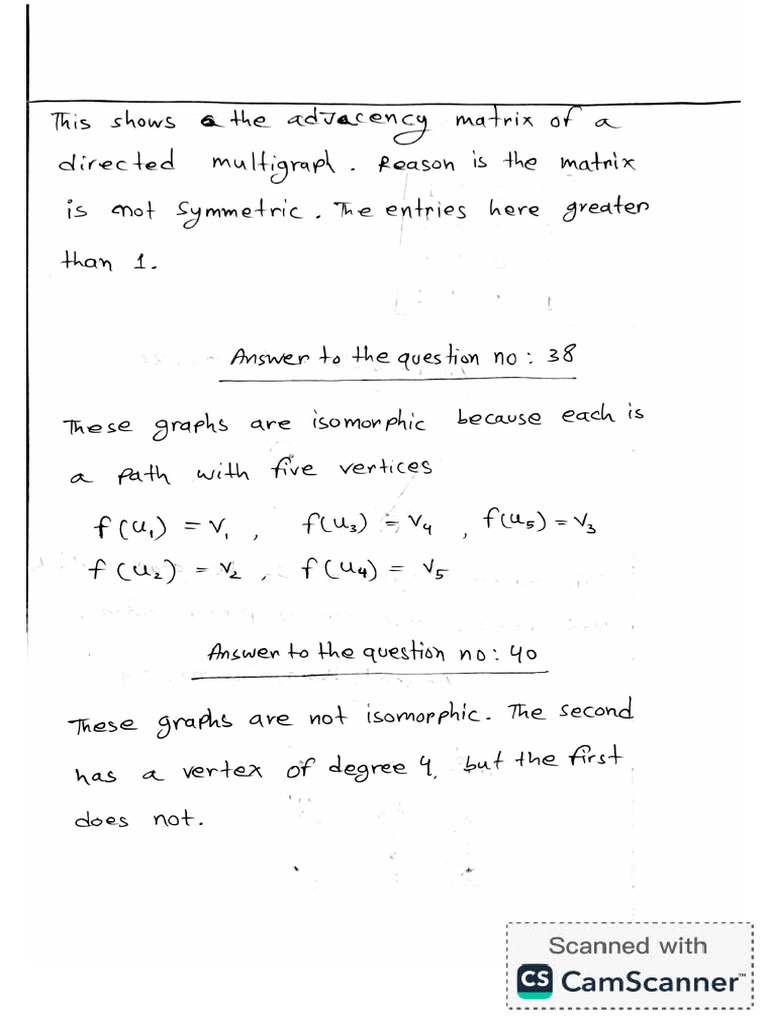 This shows the adjacency matrix of a
directed multigraph. Reason is the matrix
is not symmetric. The entries here greater
than 1.
Answer to the question no: 38
These graphs are isomorphic because each is
a path with five vertices
f(u₁) = v₁, f(u₃) = v₄, f(u₅) = v₃
f(u₂) = v₂, f(u₄) = v₅
Answer to the question no: 40
These graphs are not isomorphic. The second
has a vertex of degree 4, but the first
does not.
Scanned with
CS CamScanner™